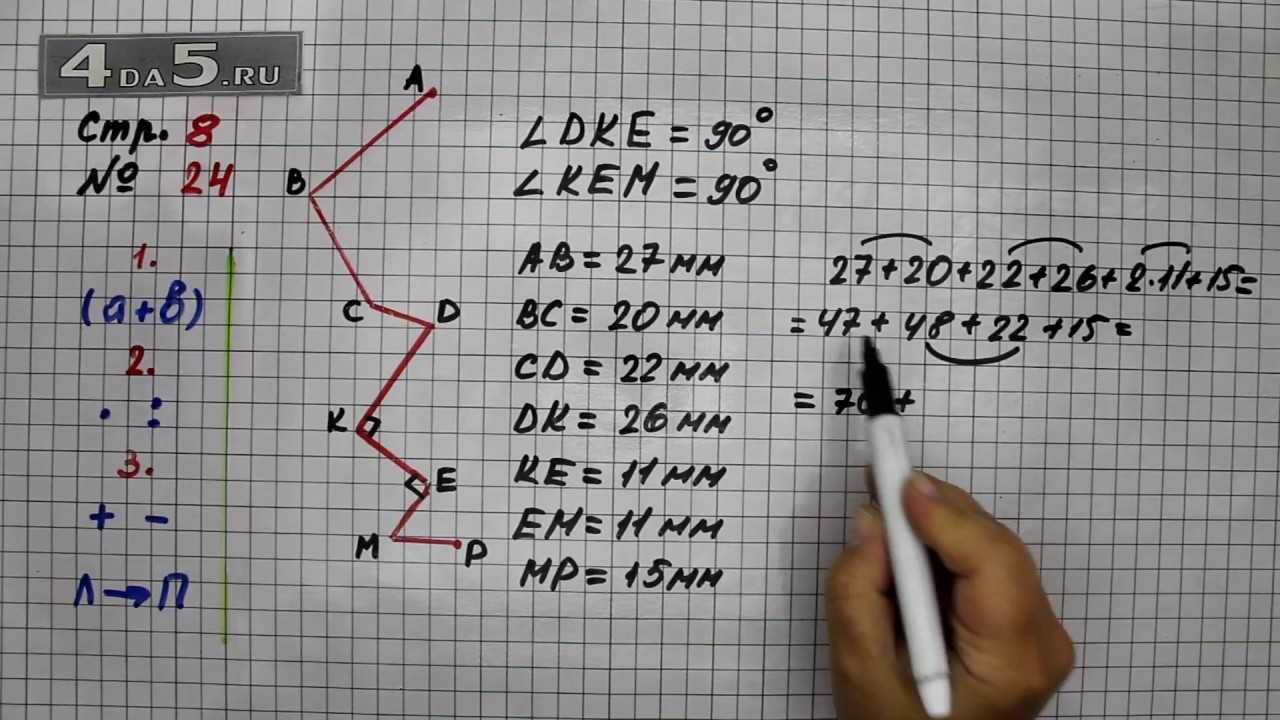 4DA5.RU
Стр. 8
№ 24
1.
(а+в)
2.
· :
3.
+ −
Л→П
A
B
C
D
K
E
M
P
∠DKE = 90°
∠KEM = 90°
AB = 27 мм
BC = 20 мм
CD = 22 мм
DK = 26 мм
KE = 11 мм
EM = 11 мм
MP = 15 мм
27+20+22+26+2·11+15=
=47+48+22+15=
= 70 +